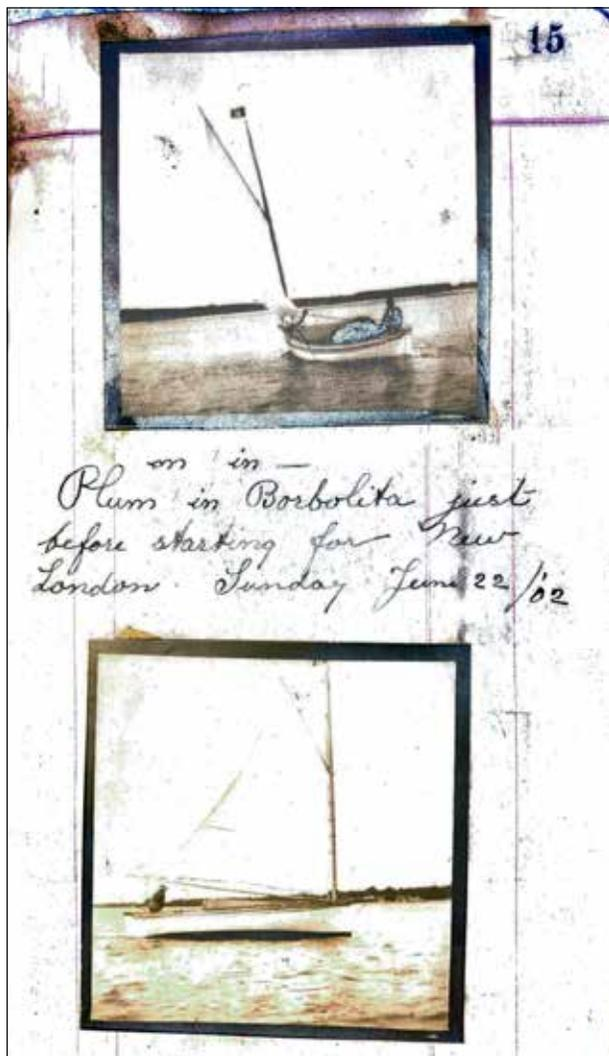 15
on in —
Plum in Borbolita just
before starting for New
London. Sunday June 22/'02